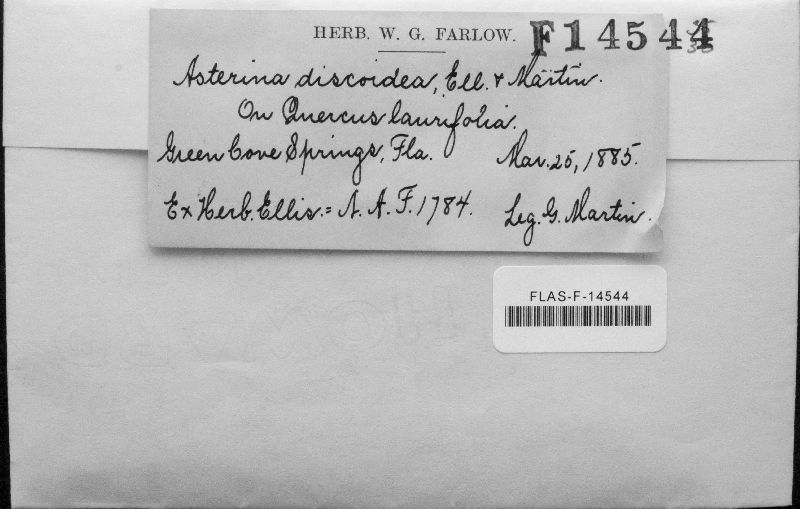 HERB. W. G. FARLOW. F14544
Asterina discoidea, Ell. & Martin.
On Quercus laurifolia.
Green Cove Springs, Fla. Mar. 25, 1885.
Ex Herb. Ellis. = N. A. F. 1784. Leg. G. Martin.
FLAS-F-14544